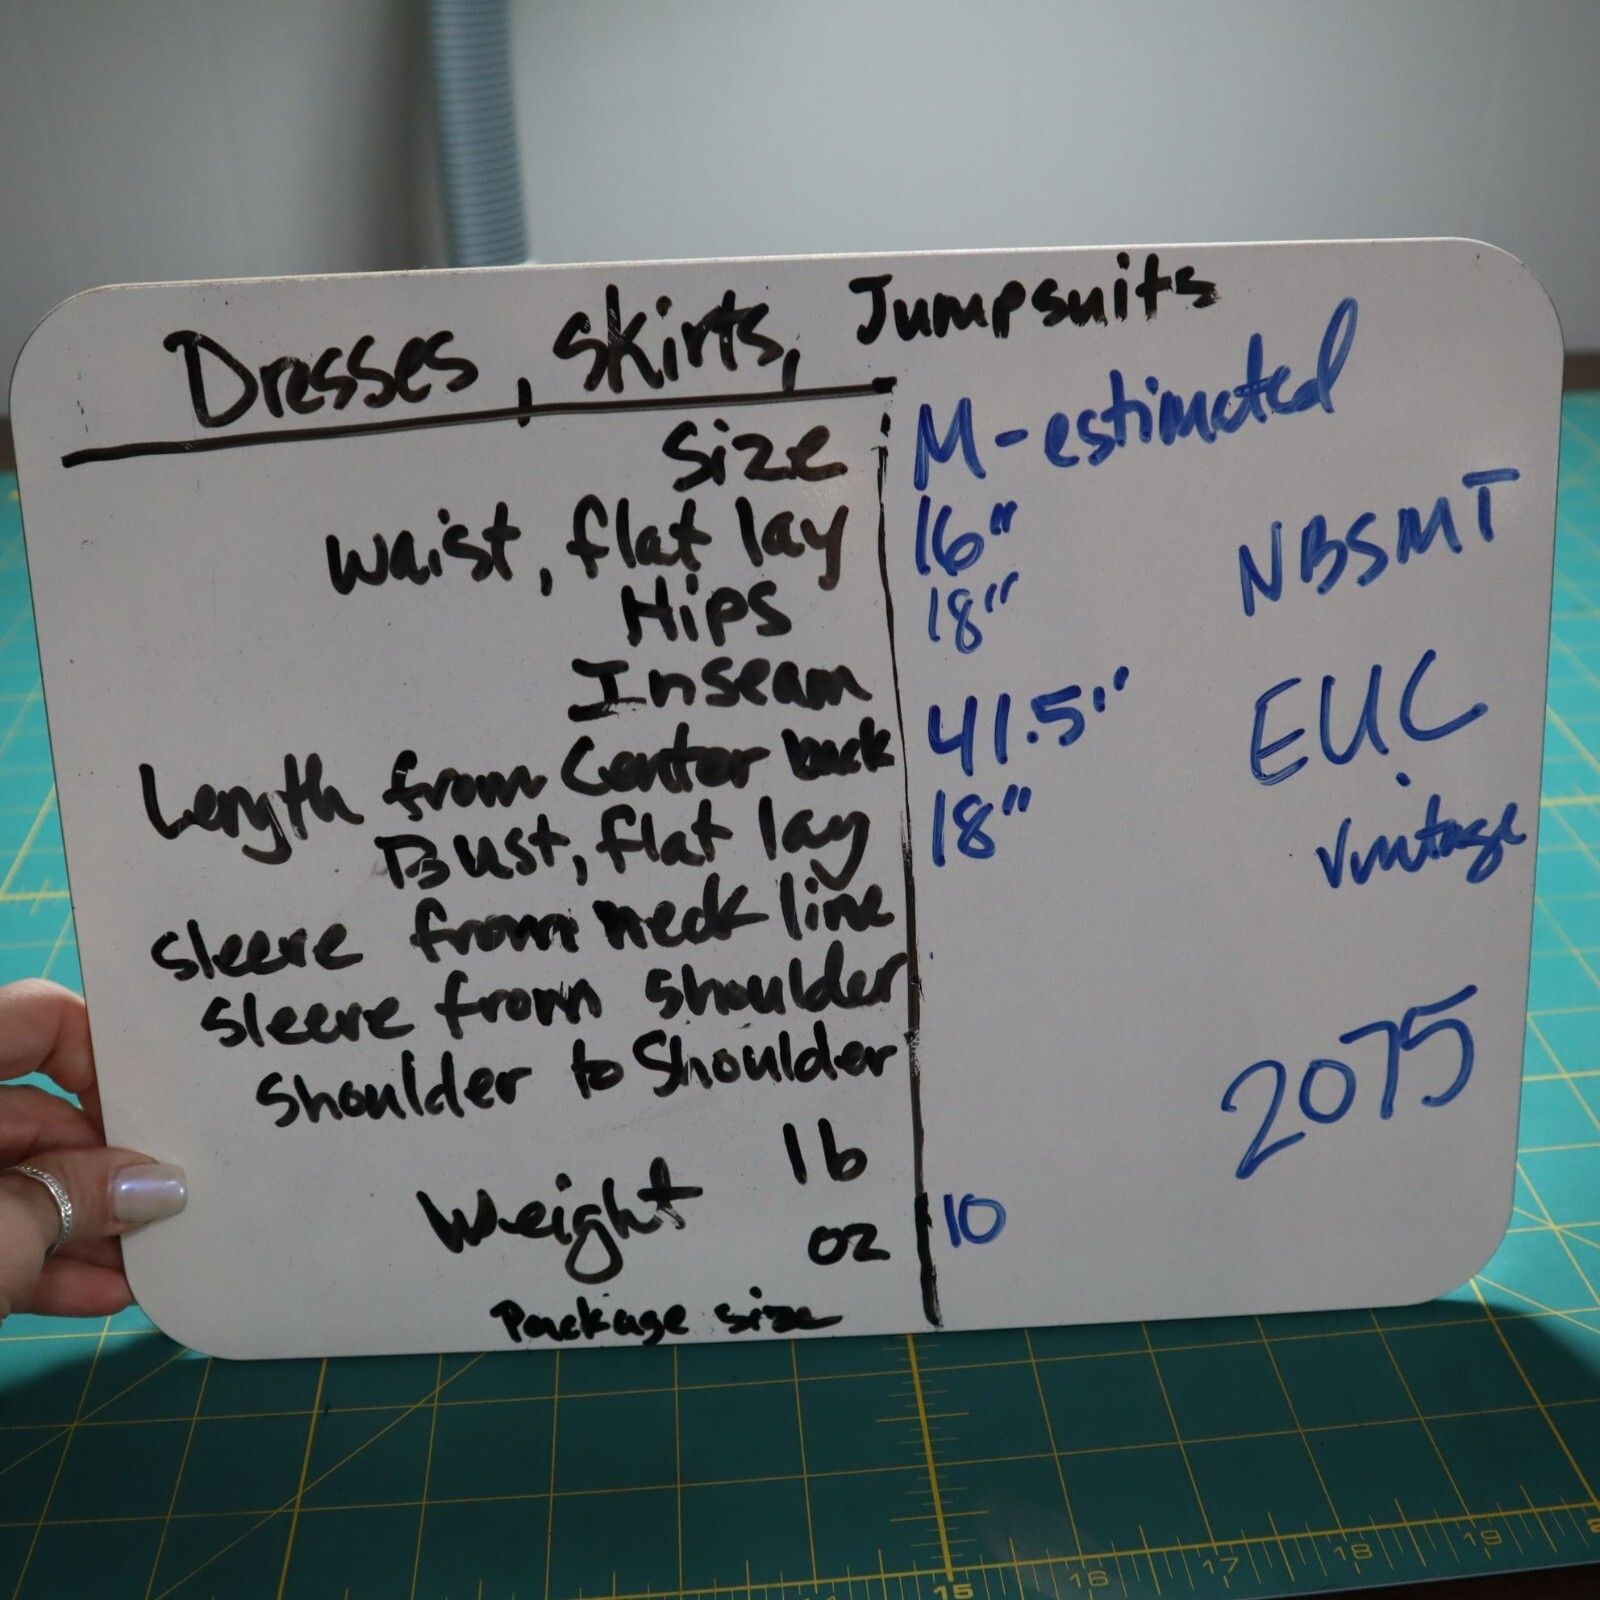 Dresses, Skirts, Jumpsuits
Size M-estimated
Waist, flat lay 16"
Hips 18"
Inseam
Length from Center back 41.5"
Bust, flat lay 18"
Sleeve from neck line
Sleeve from shoulder
Shoulder to Shoulder
Weight lb
oz 10
Package size
NBSMT
EUC
Vintage
2075
15 16 17 18 19